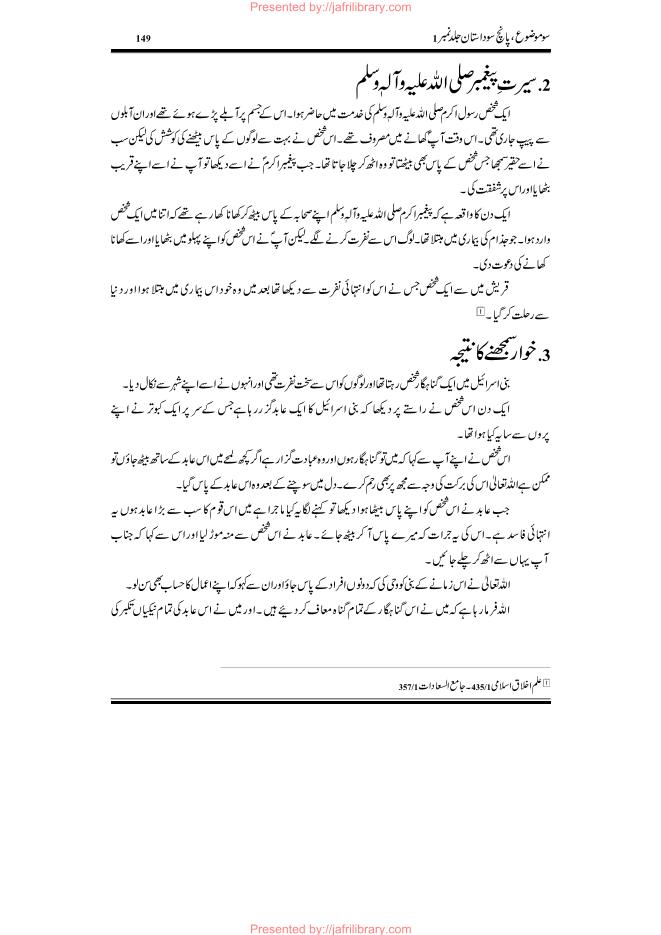 Presented by://jafrilibrary.com
سو موضوع، پانچ سو داستان جلد نمبر 1
149
2. سیرتِ پیغمبر صلی اللہ علیہ وآلہٖ وسلم
ایک شخص رسول اکرم صلی اللہ علیہ وآلہٖ وسلم کی خدمت میں حاضر ہوا۔ اس کے جسم پر آبلے پڑے ہوئے تھے اور ان آبلوں
سے پیپ جاری تھی۔ اس وقت آپؐ کھانے میں مصروف تھے۔ اس شخص نے بہت سے لوگوں کے پاس بیٹھنے کی کوشش کی لیکن سب
نے اسے حقیر سمجھا جس شخص کے پاس بھی بیٹھتا تو وہ اٹھ کر چلا جاتا تھا۔ جب پیغمبر اکرمؐ نے اسے دیکھا تو آپ نے اسے اپنے قریب
بٹھایا اور اس پر شفقت کی۔
ایک دن کا واقعہ ہے کہ پیغمبر اکرم صلی اللہ علیہ وآلہٖ وسلم اپنے صحابہ کے پاس بیٹھ کر کھانا کھا رہے تھے کہ اتنا میں ایک شخص
وارد ہوا۔ جو جذام کی بیماری میں مبتلا تھا۔ لوگ اس سے نفرت کرنے لگے۔ لیکن آپؐ نے اس شخص کو اپنے پہلو میں بٹھایا اور اسے کھانا
کھانے کی دعوت دی۔
قریش میں سے ایک شخص جس نے اس کو انتہائی نفرت سے دیکھا تھا بعد میں وہ خود اس بیماری میں مبتلا ہوا اور دنیا
سے رحلت کر گیا۔ [1]
3. خوار سمجھنے کا نتیجہ
بنی اسرائیل میں ایک گناہگار شخص رہتا تھا اور لوگوں کو اس سے سخت نفرت تھی اور انہوں نے اسے اپنے شہر سے نکال دیا۔
ایک دن اس شخص نے راستے پر دیکھا کہ بنی اسرائیل کا ایک عابد گزر رہا ہے جس کے سر پر ایک کبوتر نے اپنے
پروں سے سایہ کیا ہوا تھا۔
اس شخص نے اپنے آپ سے کہا کہ میں تو گناہگار ہوں اور وہ عبادت گزار ہے اگر کچھ لمحے میں اس عابد کے ساتھ بیٹھ جاؤں تو
ممکن ہے اللہ تعالیٰ اس کی برکت کی وجہ سے مجھ پر بھی رحم کرے۔ دل میں سوچنے کے بعد وہ اس عابد کے پاس گیا۔
جب عابد نے اس شخص کو اپنے پاس بیٹھا ہوا دیکھا تو کہنے لگا یہ کیا ماجرا ہے میں اس قوم کا سب سے بڑا عابد ہوں یہ
انتہائی فاسد ہے۔ اس کی یہ جرات کہ میرے پاس آ کر بیٹھ جائے۔ عابد نے اس شخص سے منہ موڑ لیا اور اس سے کہا کہ جناب
آپ یہاں سے اٹھ کر چلے جائیں۔
اللہ تعالیٰ نے اس زمانے کے بنی کو وحی کی کہ دونوں افراد کے پاس جاؤ اور ان سے کہو کہ اپنے اعمال کا حساب بھی سن لو۔
اللہ فرما رہا ہے کہ میں نے اس گناہگار کے تمام گناہ معاف کر دیئے ہیں۔ اور میں نے اس عابد کی تمام نیکیاں تکبر کی
[1] علم اخلاق اسلامی 435/1۔ جامع السعادات 357/1
Presented by://jafrilibrary.com